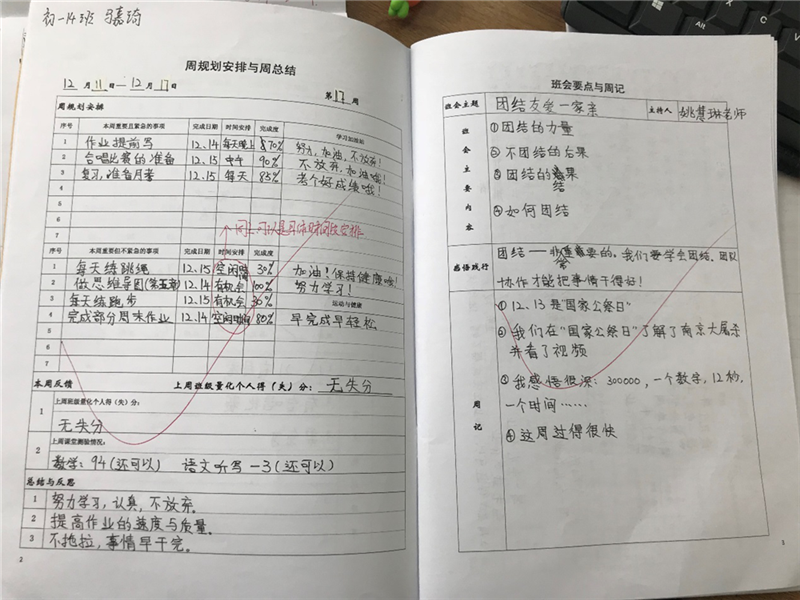 初一14班 马嘉琦
周规划安排与周总结
12月11日—12月17日
第17周
周规划安排
序号 本周重要且紧急的事项 完成日期 时间安排 完成度 学习加油站
1 作业提前写 12.14 每天晚上 870% 努力,加油,不放弃!
2 合唱比赛的准备 12.15 中午 90% 不放弃,加油哦!
3 复习,准备月考 12.15 每天 85% 考个好成绩哦!
4
5
6
7
序号 本周重要但不紧急的事项 完成日期 时间安排 完成度
1 每天练跳绳 12.15 空闲时 30% 加油!保持健康哦!
2 做思维导图(第五章) 12.14 有机会 100% 努力学习!
3 每天练跑步 12.15 有机会 30% 运动与健康
4 完成部分周末作业 12.14 空闲时间 80% 早完成早轻松.
5
6
7
本周反馈 上周班级量化个人得(失)分: 无失分
1 上周班级量化个人得(失)分:
无失分
2 上周课堂测验情况:
数学:94(还可以) 语文听写-3(还可以)
总结与反思
1 努力学习,认真,不放弃.
2 提高作业的速度与质量.
3 不拖拉,事情早干完.
2
班会要点与周记
班会主题 团结友爱一家亲 主持人 姚慧琳老师
班会主要内容
①团结的力量
②不团结的后果
③团结的结果
④如何团结
感悟践行
团结——非常重要的,我们要学会团结、团队
协作才能把事情干得好!
周记
①12.13是“国家公祭日”
②我们在“国家公祭日”了解了南京大屠杀
并看了视频
③我感悟很深:300000,一个数字,12秒,
一个时间……
④这周过得很快
3